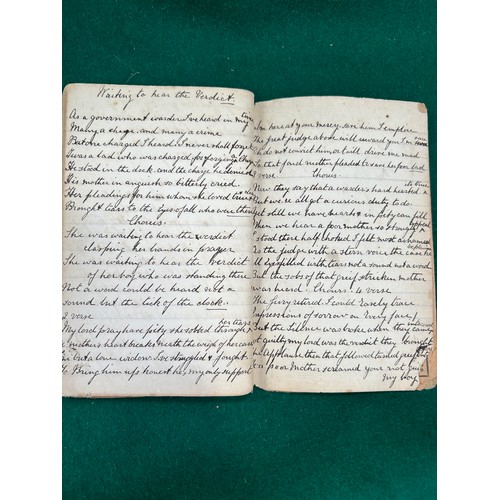 Waiting to hear the Verdict.
As a government warder I've heard in my time
Many a charge and many a crime
But one charge I heard I never shall forget
Twas a lad who was charged for forging a cheque
He stood in the dock and the charge he denied
His mother in anguish so bitterly cried
Her pleadings for him whom she loved
Brought tears to the eyes of all who were there
Chorus
She was waiting to hear the verdict
clasping her hands in prayer
She was waiting to hear the verdict
of her boy who was standing there
Not a word could be heard not a
sound but the tick of the clock.
2 verse
My lord pray have pity she sobbed through her tears
a mothers heart breaks neath the weigh of her cares
but a lone widow I've struggled & fought
To Bring him up honest he's my only support
I'm here at your mercy for him I implore
The great judge above will reward you I'm sure
do not convict him it will drive me mad
the fond mother pleaded to save her poor lad
verse Chorus
Now they say that a warders hard hearted
But we've all got a curious duty to do
yet still we have hearts and in pity can fill
When we hear a poor mother so
I stood there half choked I felt most ashamed
as the judge with a stern voice the case he
All eyes filled with tears not a sound not a word
But the sobs of that grief stricken mother
was heard Chorus 4 verse
The jury retired I could easely trace
Impressions of sorrow on every face
But the silence was broke when they
not guilty my lord was the verdict they brought
The applause then that followed
a poor mother screamed your not guilty
my boy